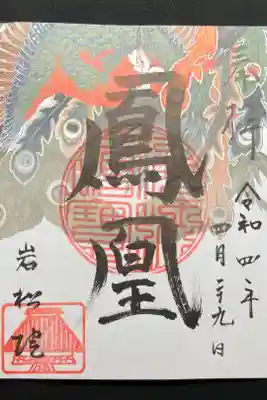 奉拝
令和四年
四月二十九日
鳳凰
岩松院